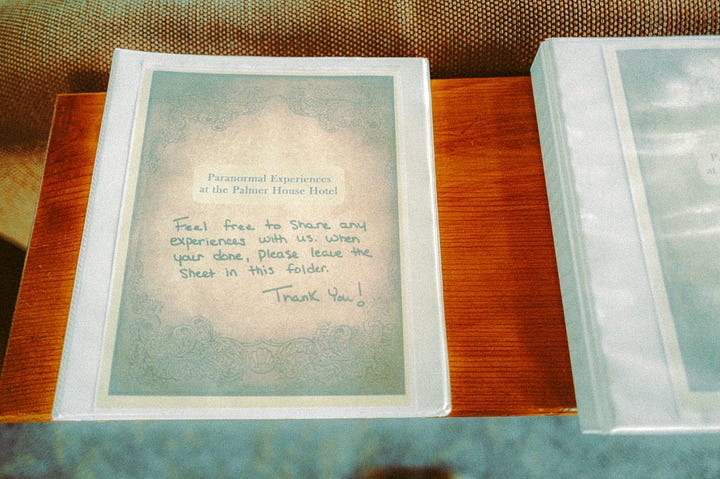 Paranormal Experiences
at the Palmer House Hotel
Feel free to Share any
experiences with us. When
your done, please leave the
Sheet in this folder.
Thank You!